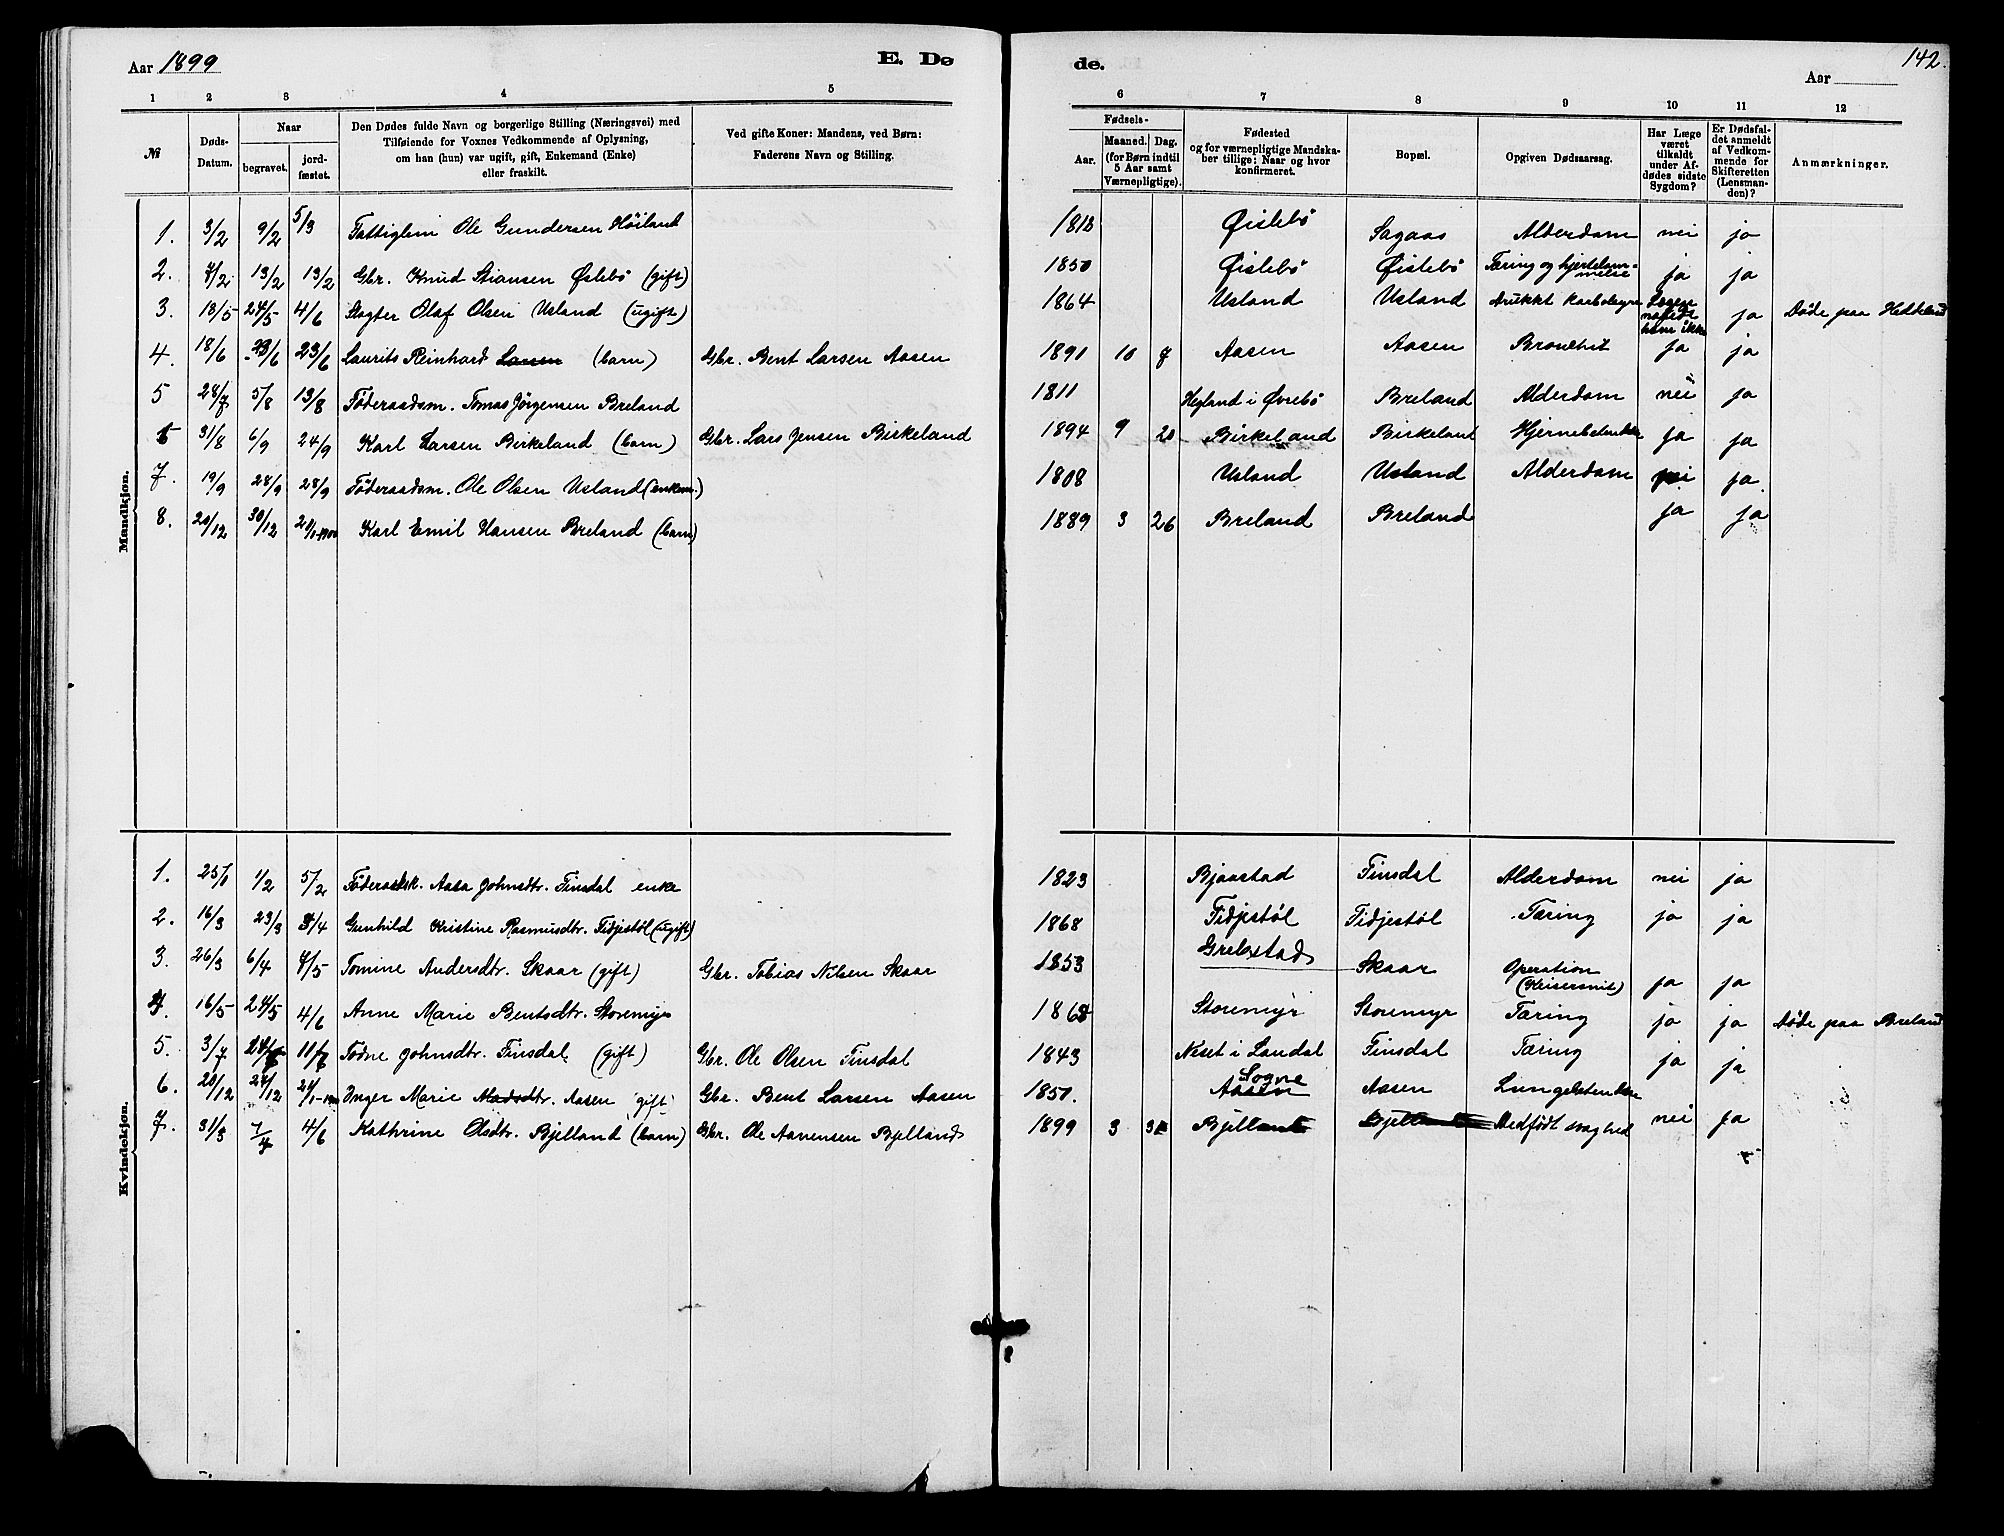 Aar 1899
E. Dø
de.
Aar
142.
1 2 3 4 5 6 7 8 9 10 11 12
№
Døds-Datum.
Naar
begravet.
jord-fæstet.
Den Dødes fulde Navn og borgerlige Stilling (Næringsvei) med
Tilføiende for Voxnes Vedkommende af Oplysning,
om han (hun) var ugift, gift, Enkemand (Enke)
eller fraskilt.
Ved gifte Koner: Mandens, ved Børn:
Faderens Navn og Stilling.
Fødsels-
Aar.
Maaned.
Dag.
(for Børn indtil
5 Aar samt
Værnepligtige).
Fødested
og for værnepligtige Mandska-
ber tillige: Naar og hvor
konfirmeret.
Bopæl.
Opgiven Dødsaarsag.
Har Læge
været
tilkaldt
under Af-
dødes sidste
Sygdom?
Er Dødsfal-
det anmeldt
af Vedkom-
mende for
Skifteretten
(Lensman-
den)?
Anmærkninger.
Mandkjøn.
1. 3/2 9/2 5/3 Fattiglem Ole Gundersen Höiland 1813 Øislebö Sagaas Alderdom nei ja
2. 7/2 13/2 13/2 Gbr. Knud Stiansen Øslebö (gift) 1850 Øislebö Øislebö Tæring og hjertelam- ja ja
3. 13/5 24/5 4/6 Olaf Olsen Usland (ugift) 1864 Usland Usland drukket ja Döde paa
4. 18/6 23/6 23/6 Laurits Reinhard Larsen (barn) Gbr. Bent Larsen Aasen 1891 10 7 Aasen Aasen Bronchit ja ja
5 28/7 5/8 13/8 Föderaadsm. Tomas Jörgensen Breland 1811 Heyland i Øvrebö Breland Alderdom nei ja
6 31/8 6/9 24/9 Karl Larsen Birkeland (barn) Gbr. Lars Jensen Birkeland 1894 9 20 Birkeland Birkeland ja ja
7. 19/9 28/9 28/9 Föderaadsm. Ole Olsen Usland (enkem.) 1808 Usland Usland Alderdom nei ja.
8. 20/12 30/12 21/1-1900 Karl Emil Hansen Breland (barn) 1889 3 26 Breland Breland ja ja
Kvindekjøn.
1. 25/1 1/2 5/2 Föderaadsk. Aasa Johnsdtr. Finsdal enke 1823 Bjaastad Finsdal Alderdom nei ja
2. 16/3 23/3 3/4 Gunhild Kristine Rasmusdtr. Fidjestöl (ugift) 1868 Fidjestöl Fidjestöl Tæring ja ja
3. 26/3 6/4 7/5 Tomine Andersdtr. Skaar (gift) Gbr. Tobias Nilsen Skaar 1853 Grebstad Skaar Operation
(Keisersnit) ja ja
4. 16/5 24/5 4/6 Anne Marie Bentsdtr. Storemyr 1868 Storemyr Storemyr Tæring ja ja Döde paa Breland
5. 3/7 11/7 Todne Johnsdtr. Finsdal (gift) Gbr. Ole Olsen Finsdal 1843 Neset i Landal Finsdal Tæring ja ja
Sogne
6. 20/12 27/12 21/1-1900 Inger Marie Madsdtr. Aasen (gift) Gbr. Bent Larsen Aasen 1851. Aasen Aasen ja
7. 31/3 7/4 4/6 Kathrine Olsdtr. Bjelland (barn) Gbr. Ole Aanensen Bjelland 1899 3 31 Bjelland Bjelland Medfödt svaghed nei ja